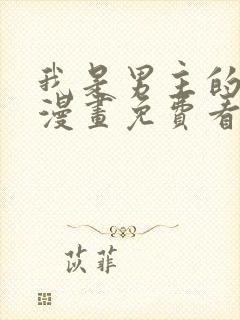 我是男主的
漫畫免費看
苡菲